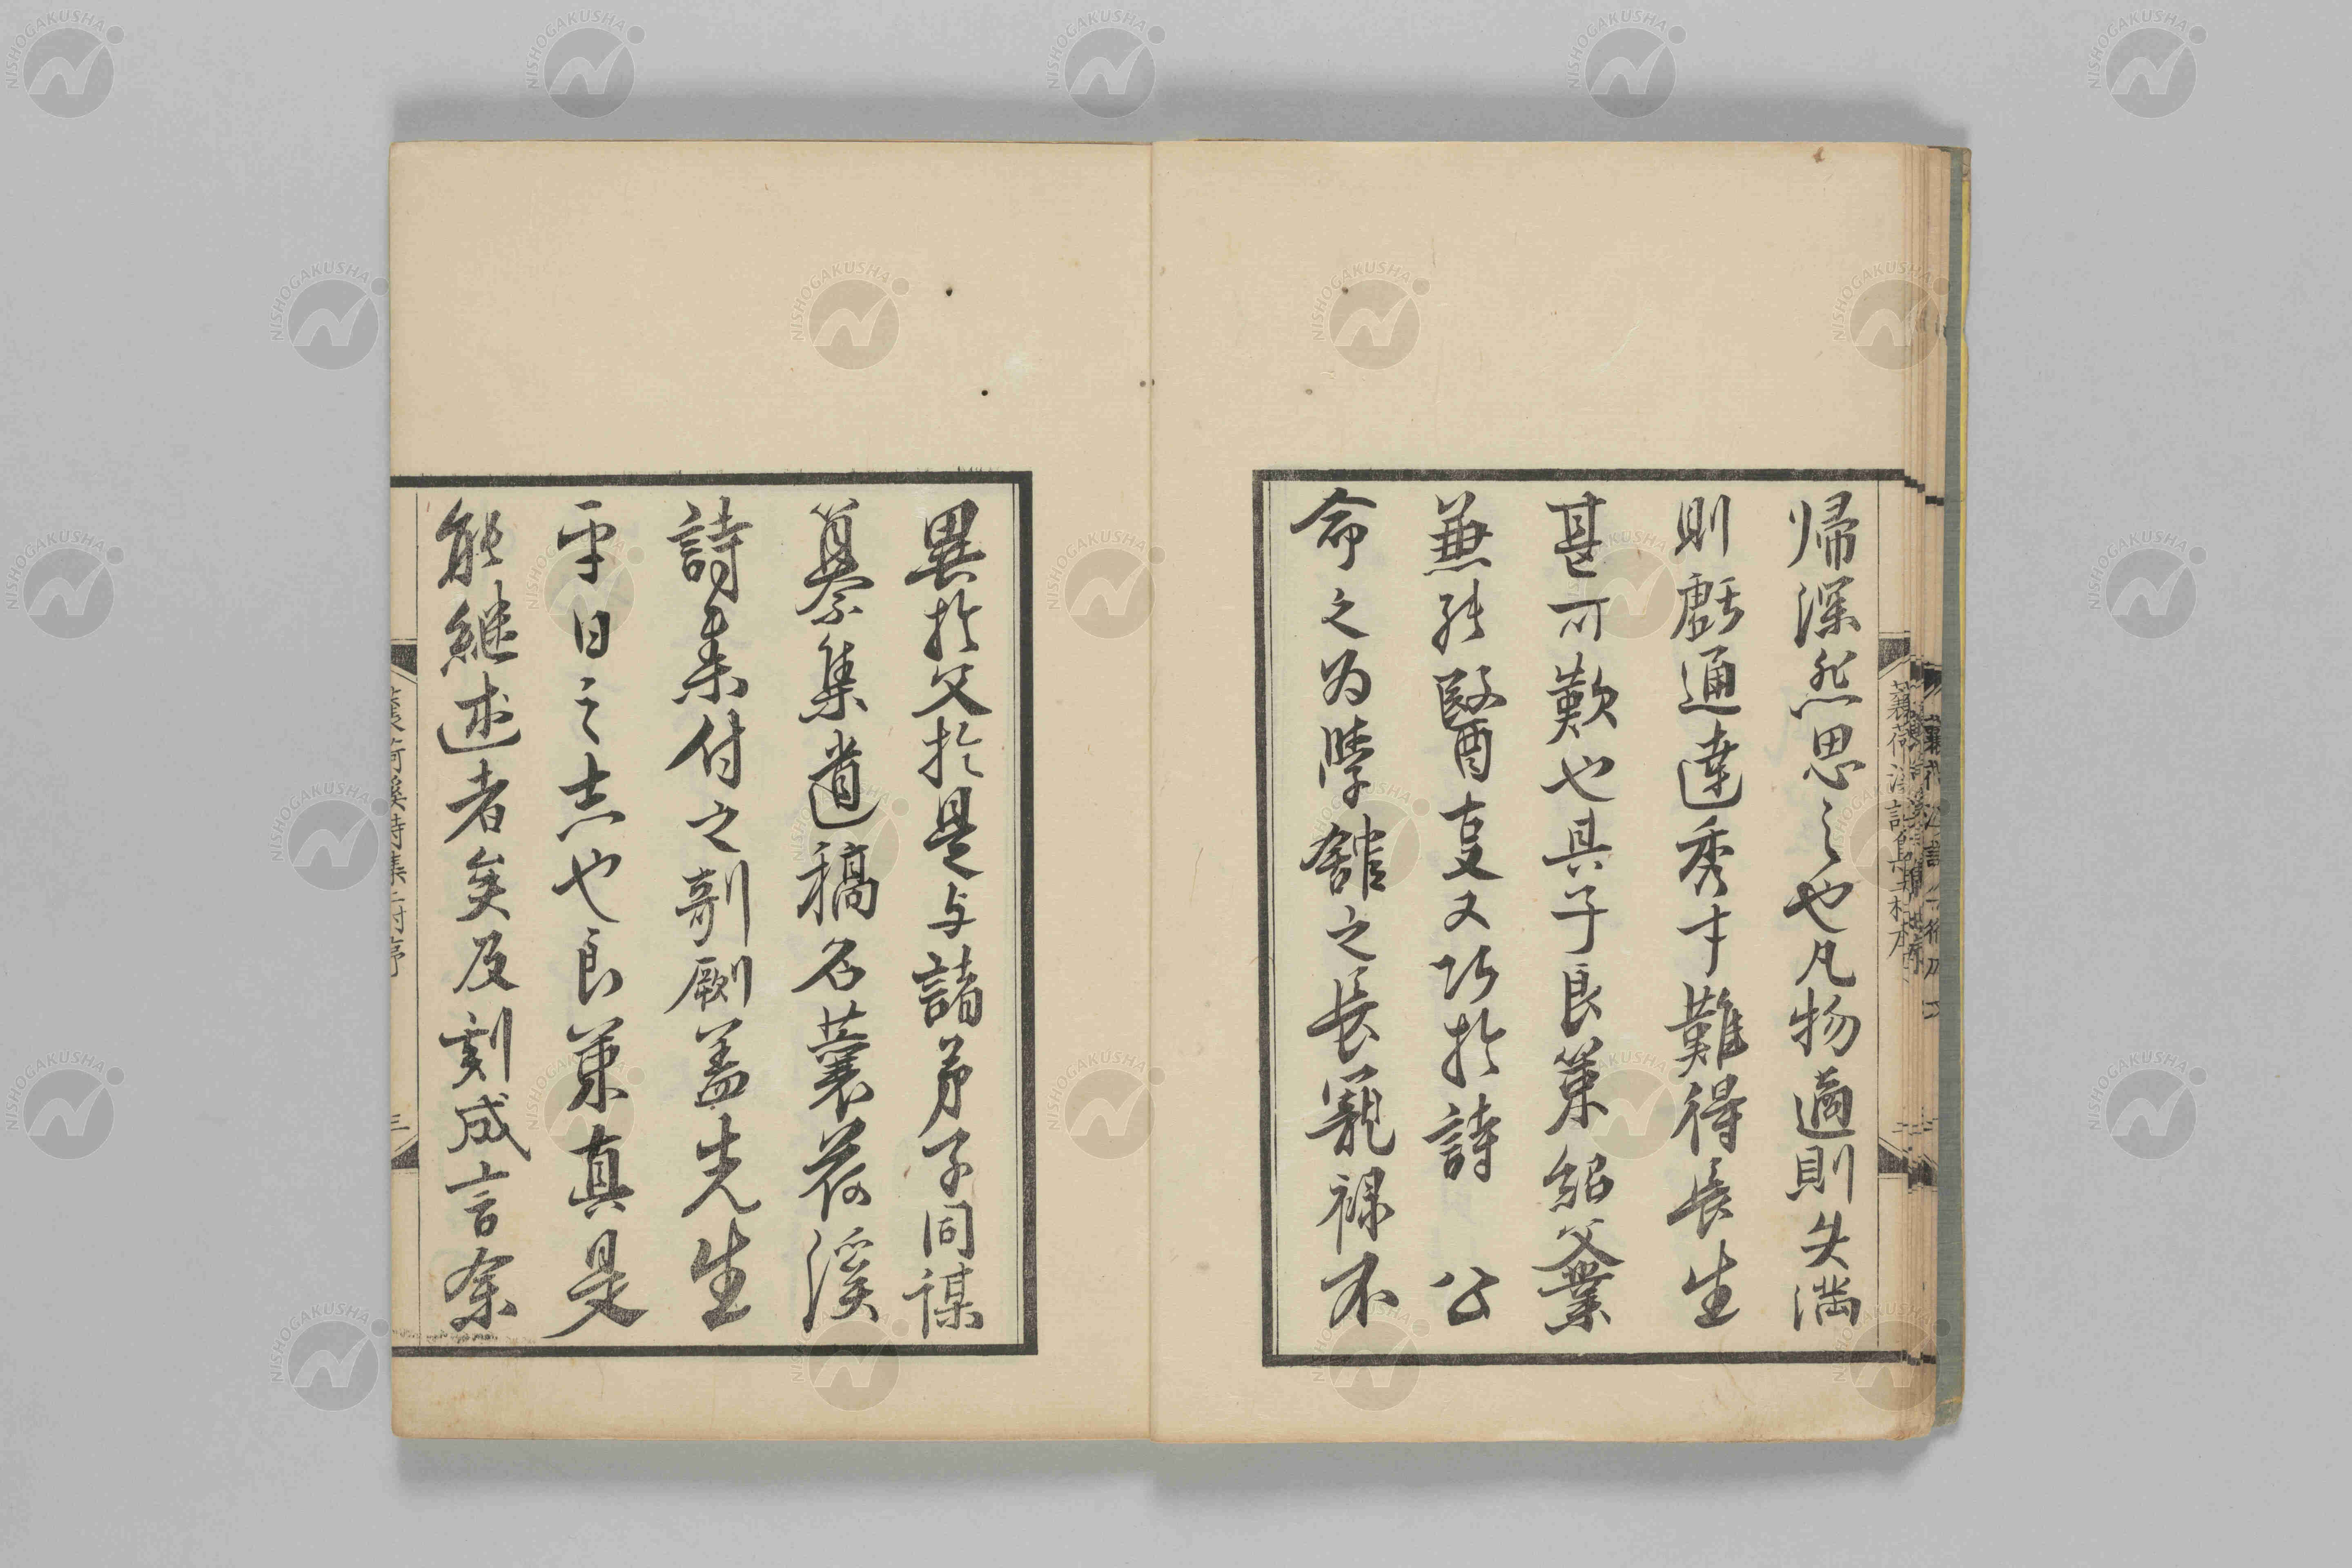 帰深然思之也凡物適則失満
則虧通達秀才難得長生
甚可歎也其子良策紹父業
兼能醫事又巧於詩 公
命之為学舘之長寵禄不
異於父於是与諸弟子同謀
纂集遺稿名蘘荷溪
詩集付之剞劂盖先生
平日之志也良策真是
能継述者矣及刻成言余
蘘荷溪詩集
三
NISHOGAKUSHA